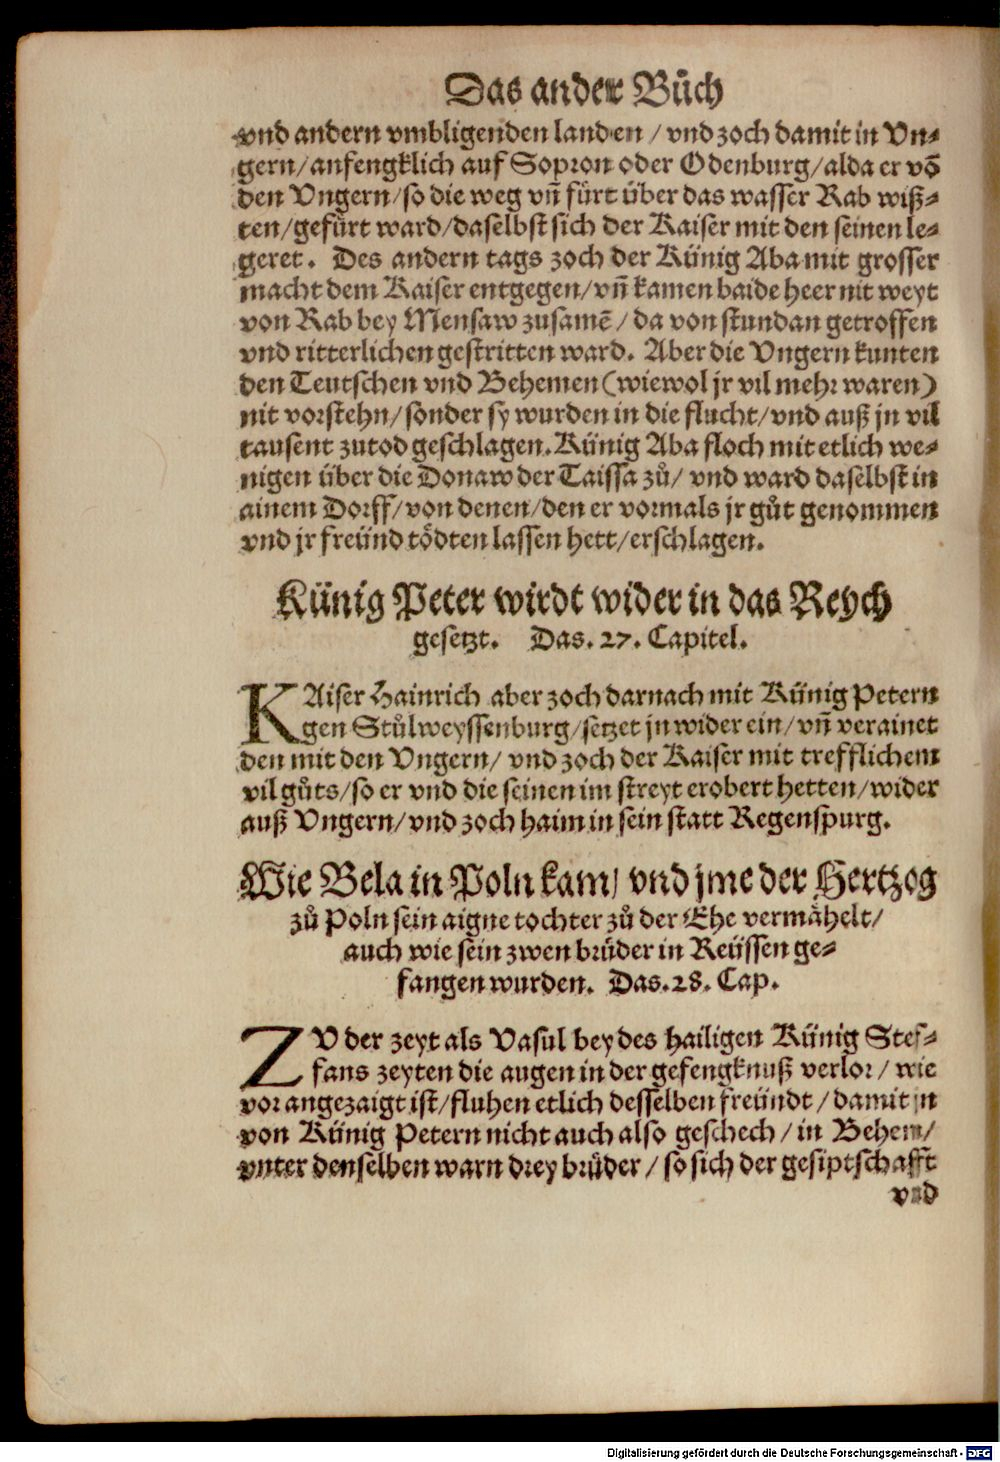 Das ander Bůch
vnd andern vmbligenden landen / vnd zoch damit in Vn⸗
gern/anfengklich auf Sopron oder Odenburg/alda er võ
den Vngern/so die weg vñ fürt über das wasser Rab wiß⸗
ten/gefürt ward/daselbst sich der Kaiser mit den seinen le⸗
geret. Des andern tags zoch der Künig Aba mit grosser
macht dem Kaiser entgegen/vñ kamen baide heer nit weyt
von Rab bey Mensaw zusamẽ / da von stundan getroffen
vnd ritterlichen gestritten ward. Aber die Vngern kunten
den Teutschen vnd Behemen (wiewol jr vil mehr waren)
nit vorstehn/sonder sy wurden in die flucht/vnd auß jn vil
tausent zutod geschlagen. Künig Aba floch mit etlich we⸗
nigen über die Donaw der Taissa zů/ vnd ward daselbst in
ainem Dorff/von denen/den er vormals jr gůt genommen
vnd jr freünd tödten lassen hett/erschlagen.
Künig Peter wirdt wider in das Reych
gesetzt. Das. 27. Capitel.
KAiser Hainrich aber zoch darnach mit Künig Petern
gen Stůlweyssenburg/setzet jn wider ein/vñ verainet
den mit den Vngern/ vnd zoch der Kaiser mit trefflichem
vil gůts/so er vnd die seinen im streyt erobert hetten/wider
auß Vngern/vnd zoch haim in sein statt Regenspurg.
Wie Bela in Poln kam/ vnd jme der Hertzog
zů Poln sein aigne tochter zů der Ehe vermähelt/
auch wie sein zwen brüder in Reüssen ge⸗
fangen wurden. Das. 28. Cap.
ZV der zeyt als Vasul bey des hailigen Künig Stef⸗
fans zeyten die augen in der gefengknuß verlor / wie
vor angezaigt ist/fluhen etlich desselben freündt / damit jn
von Künig Petern nicht auch also geschech / in Behem/
vnter denselben warn drey brüder / so sich der gesiptschafft
vnd
Digitalisierung gefördert durch die Deutsche Forschungsgemeinschaft - DFG